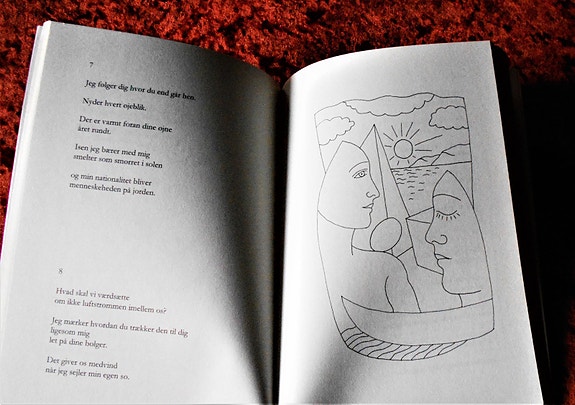 7
Jeg følger dig hvor du end går hen.
Nyder hvert øjeblik.
Det er varmt foran dine øjne
året rundt.
Isen jeg bærer med mig
smelter som smørret i solen
og min nationalitet bliver
menneskeheden på jorden.
8
Hvad skal vi værdsætte
om ikke luftstrømmen imellem os?
Jeg mærker hvordan du trækker den til dig
ligesom mig
let på dine bølger.
Det giver os medvind
når jeg sejler min egen sø.